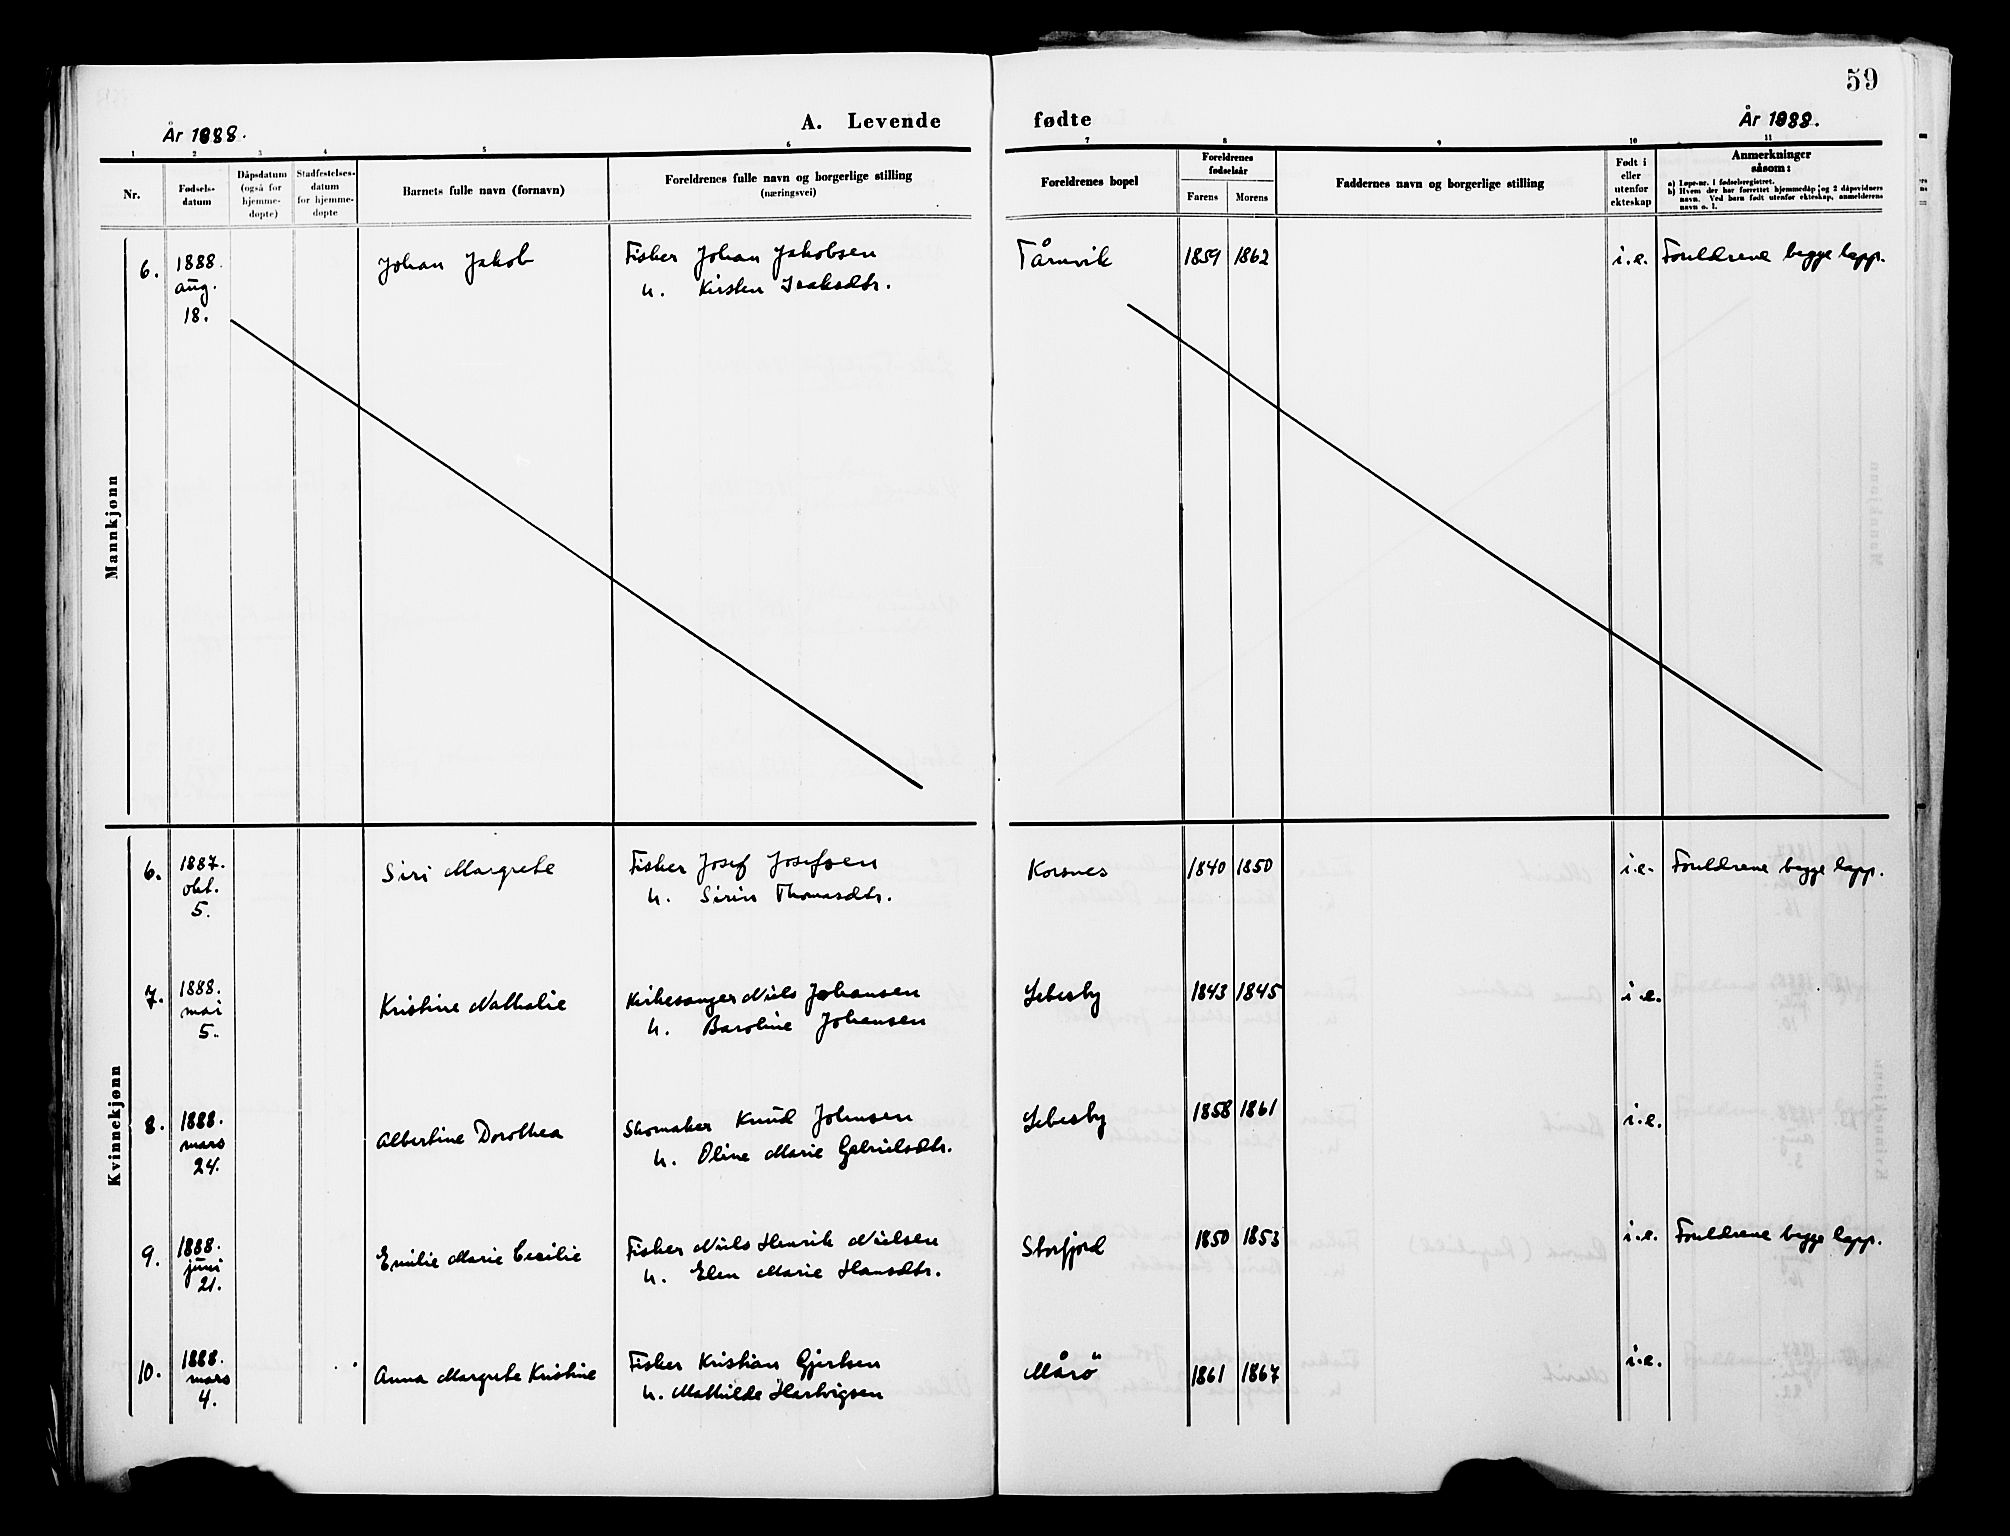 59
År 1888. A. Levende fødte År 1888.
1 2 3 4 5 6 7 8 9 10 11
Nr. Fødselsdatum Dåpsdatum (også for hjemmedøpte) Stadfestelsesdatum for hjemmedøpte Barnets fulle navn (fornavn) Foreldrenes fulle navn og borgerlige stilling (næringsvei) Foreldrenes bopel Foreldrenes fødselsår Farens Morens Faddernes navn og borgerlige stilling Født i eller utenfor ekteskap Anmerkninger såsom:
a) Løpe-nr. i fødselsregistret.
b) Hvem der har forrettet hjemmedåp og 2 dåpsvidners
navn. Ved barn født utenfor ekteskap, anmelderens
navn o. l.
Mannkjønn
6. 1888. Johan Jakob Fisker Johan Jakobsen Tårnvik 1859 1862 i.e. Foreldrene begge lapp.
aug. u. Kirsten Isaksdtr.
18.
Kvinnekjønn
6. 1887. Siri Margrete Fisker Josef Josefsen Korsnes 1840 1850 i.e. Foreldrene begge lapp.
okt. u. Siren Thomasdtr.
5.
7. 1888. Kristine Nathalie Kirkesanger Niels Johansen Lebesby 1843 1845 i.e.
mai u. Baroline Johansen
5.
8. 1888. Albertine Dorothea Skomaker Knud Johnsen Lebesby 1858 1861 i.e.
mars u. Oline Marie Gabrielsdtr.
24.
9. 1888. Emilie Marie Cecilie Fisker Niels Henrik Nielsen Storfjord 1850 1853 i.e. Foreldrene begge lapp.
juni u. Elen Marie Hansdtr.
21.
10. 1888. Anna Margrete Kristine Fisker Kristian Gjertsen Mårö 1861 1867 i.e.
mars u. Mathilde Hartvigsen
4.